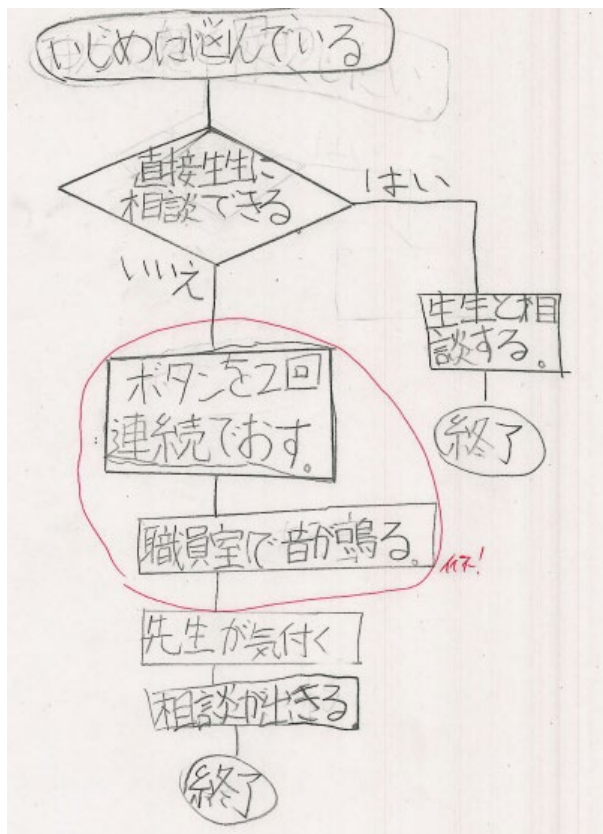 いじめに悩んでいる
直接生生に
相談できる
はい
いいえ
生生と相
談する。
終了
ボタンを2回
連続でおす。
職員室で音が鳴る。
イイネ!
先生が気付く
相談が出きる
終了